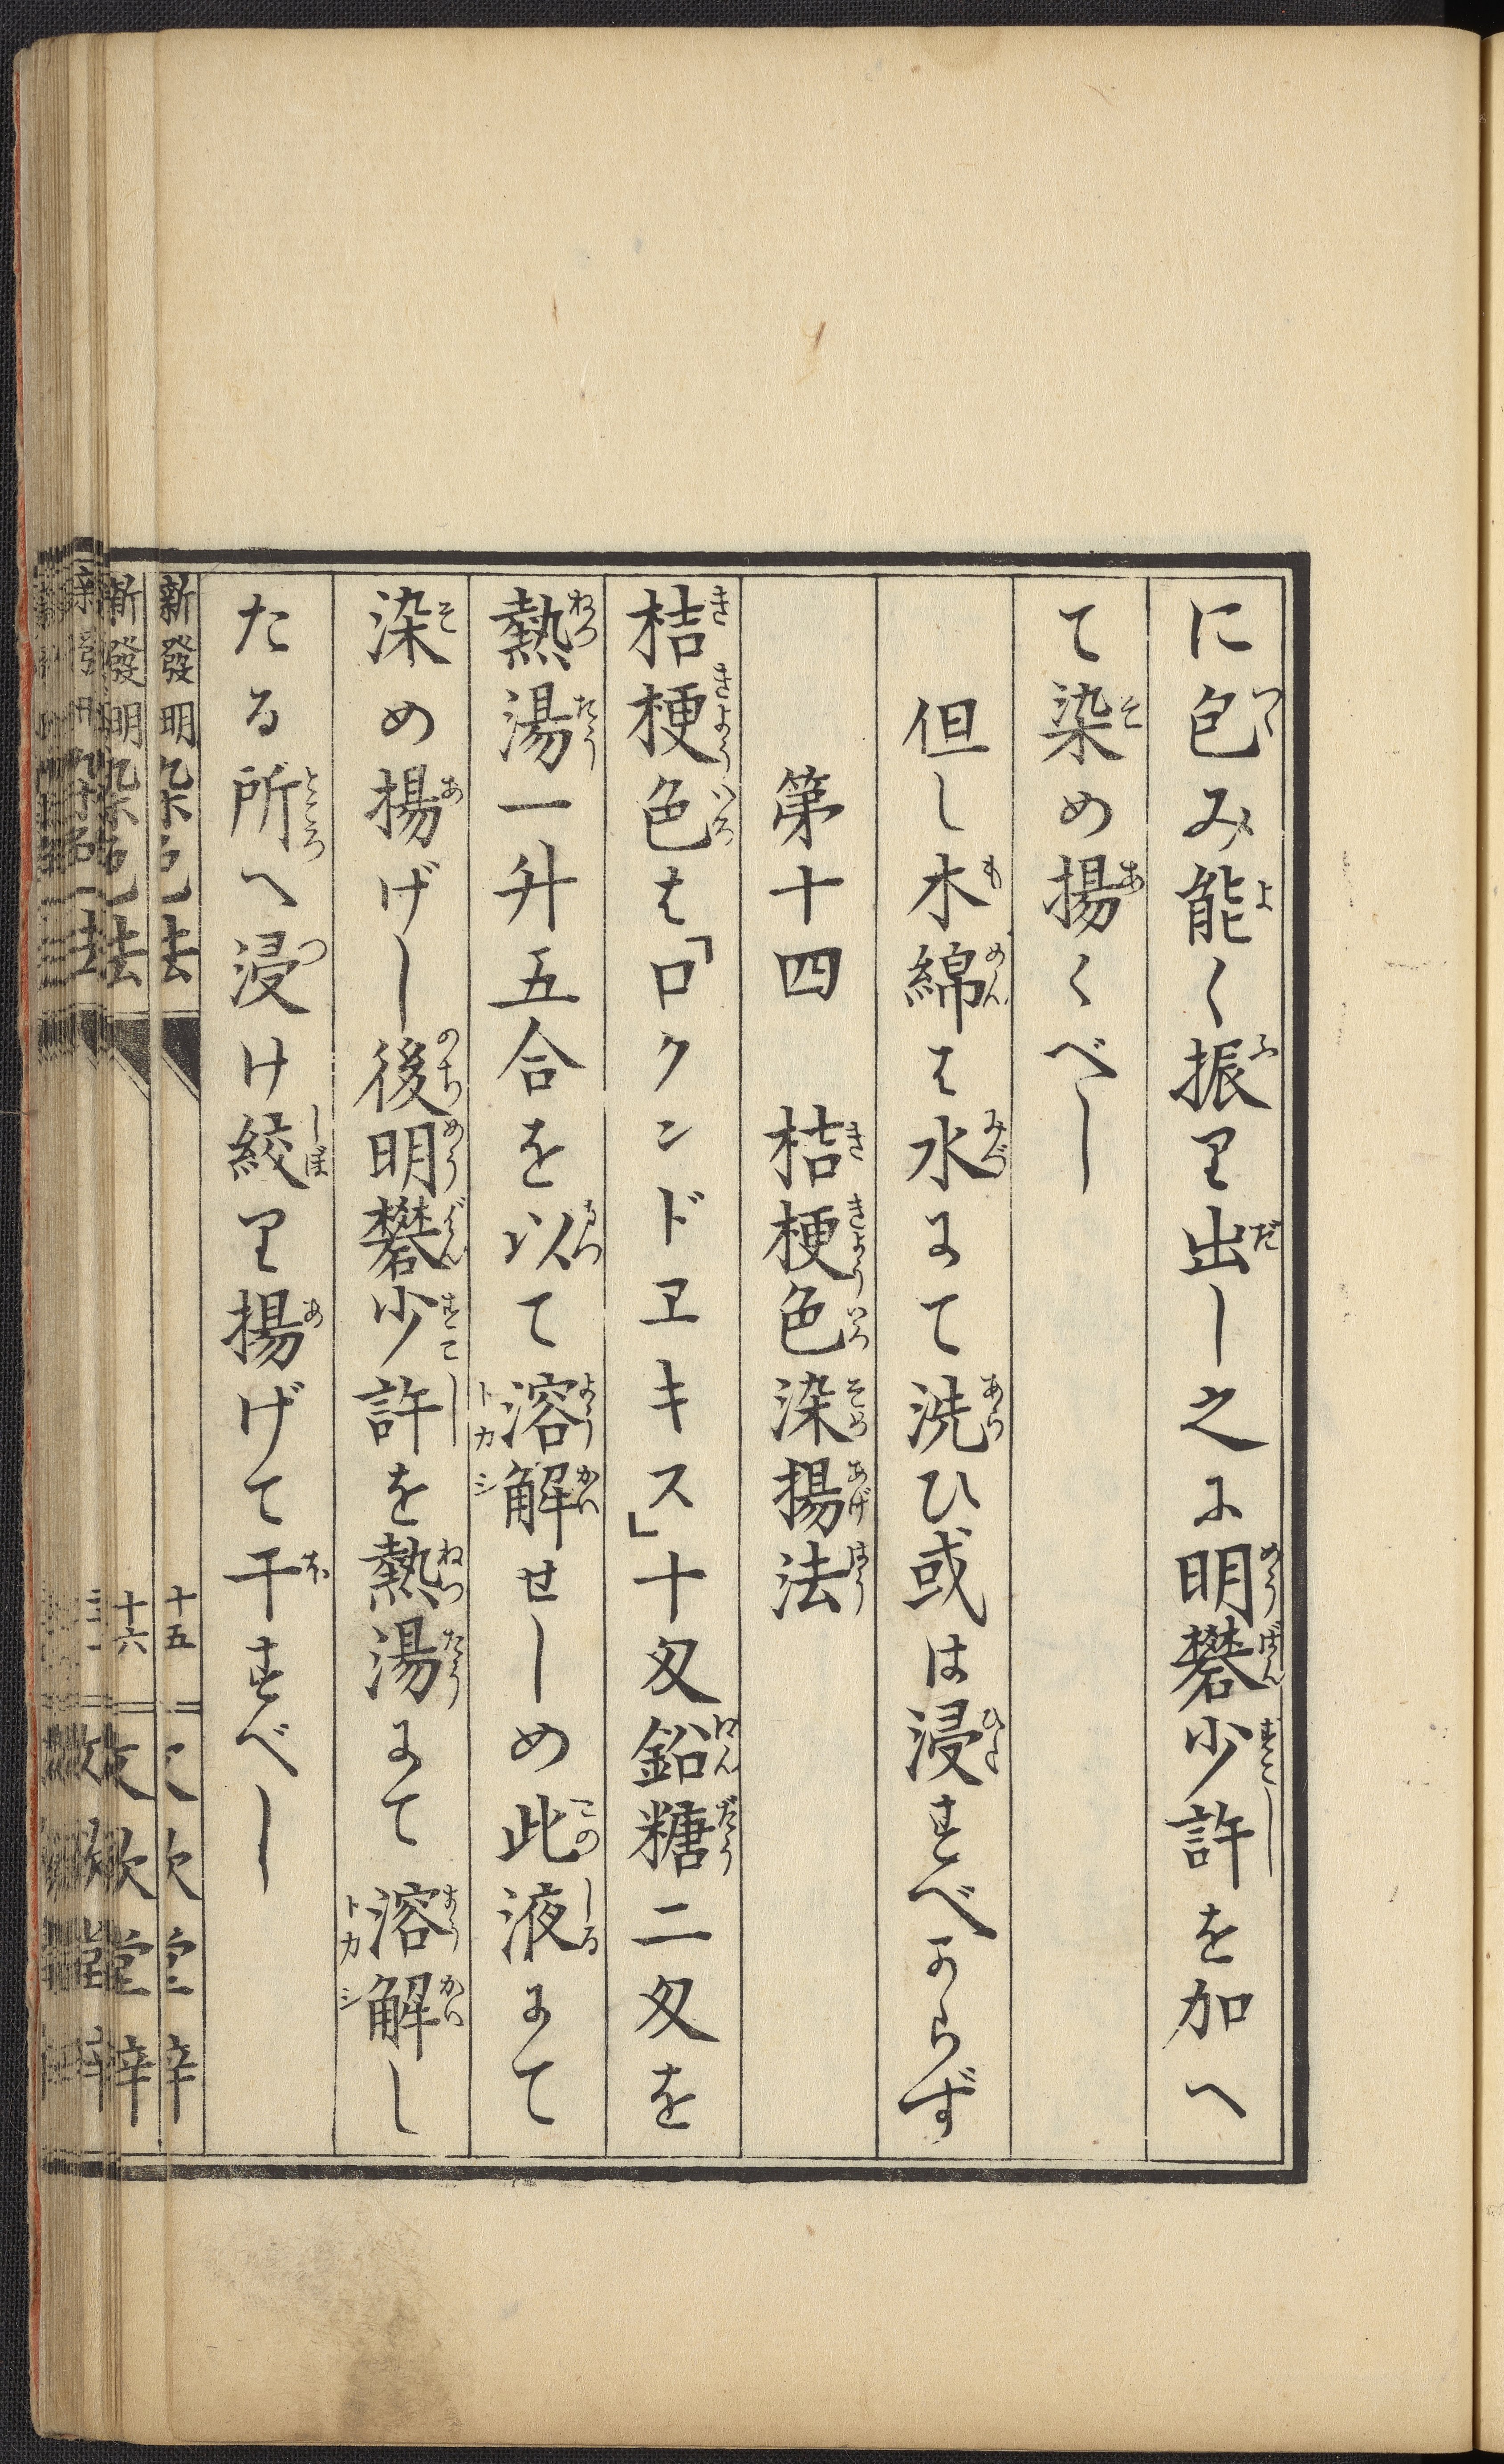 に包み能く振り出し之に明礬少許を加へ
て染め揚くべし
但し木綿は水にて洗ひ或は浸すべからず
第十四　桔梗色染揚法
桔梗色は「ロクンドヱキス」十匁鉛糖二匁を
熱湯一升五合を以て溶解せしめ此液にて
染め揚げし後明礬少許を熱湯にて溶解し
たる所へ浸け絞り揚げて干すべし
新發明染色法　十五
新發明染色法　十六